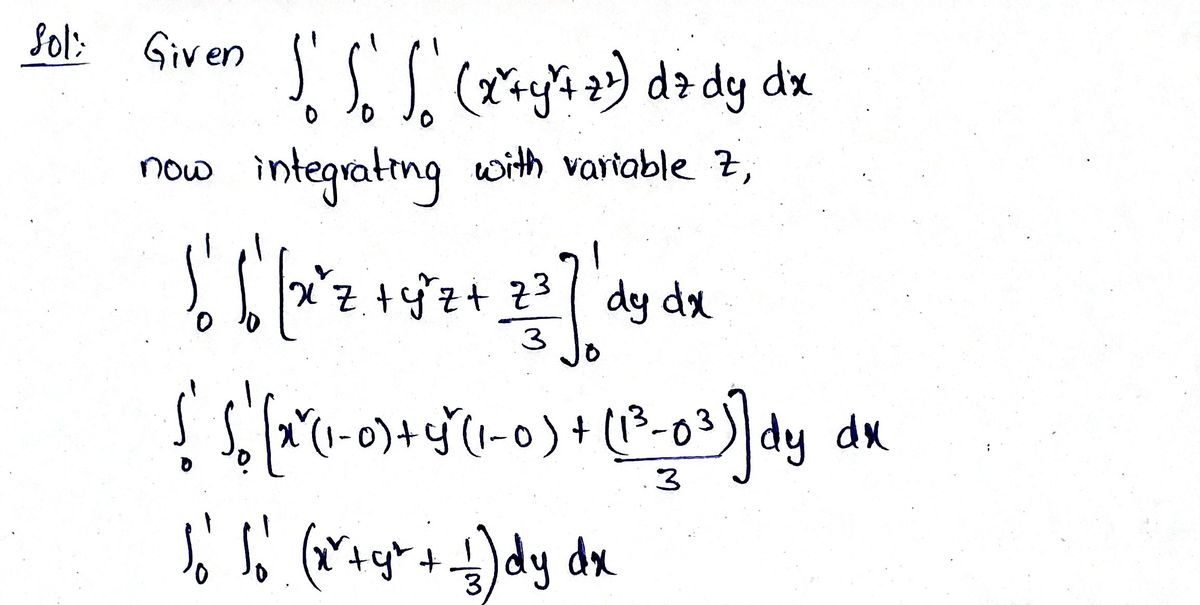 Sol: Given ∫₀¹ ∫₀¹ ∫₀¹ (x²+y²+z²) dz dy dx
now integrating with variable z,
∫₀¹ ∫₀¹ [x²z + y²z + z³/3]₀¹ dy dx
∫₀¹ ∫₀¹ [x²(1-0)+y²(1-0) + (1³-0³)/3] dy dx
∫₀¹ ∫₀¹ (x²+y²+1/3) dy dx